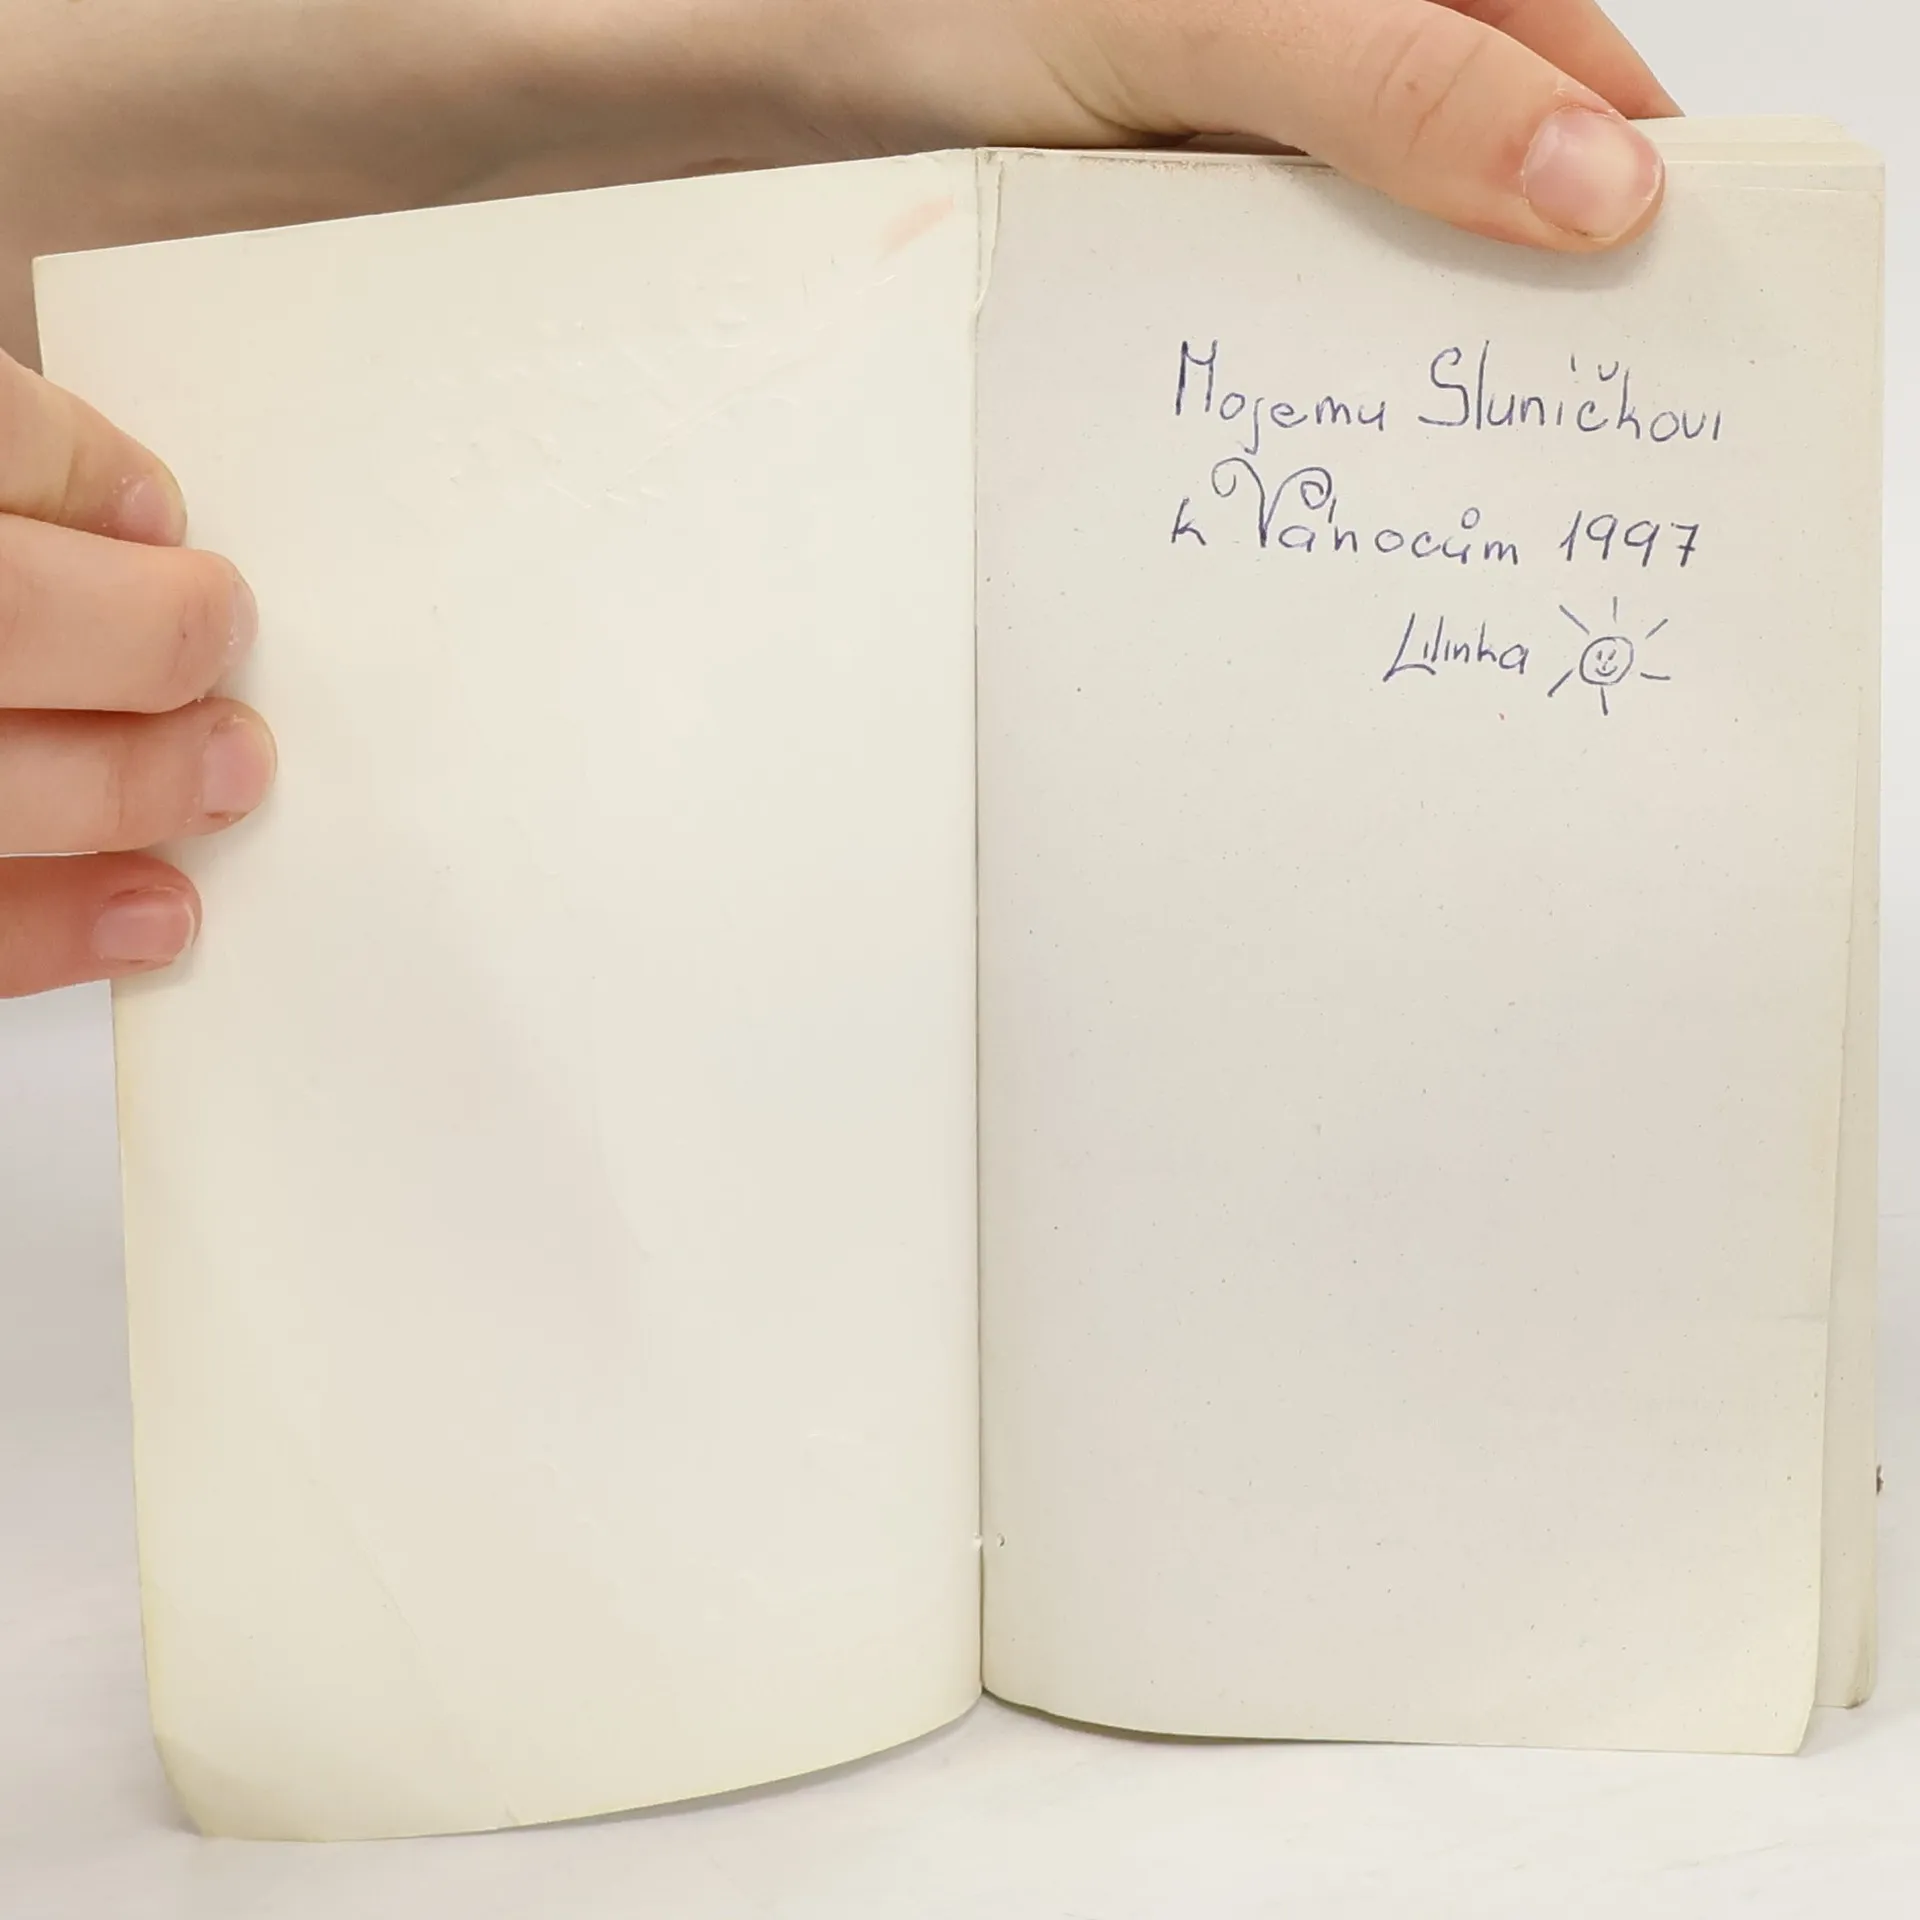 Mojemu Sluníčkovi
k Vánocům 1997
Lilinka